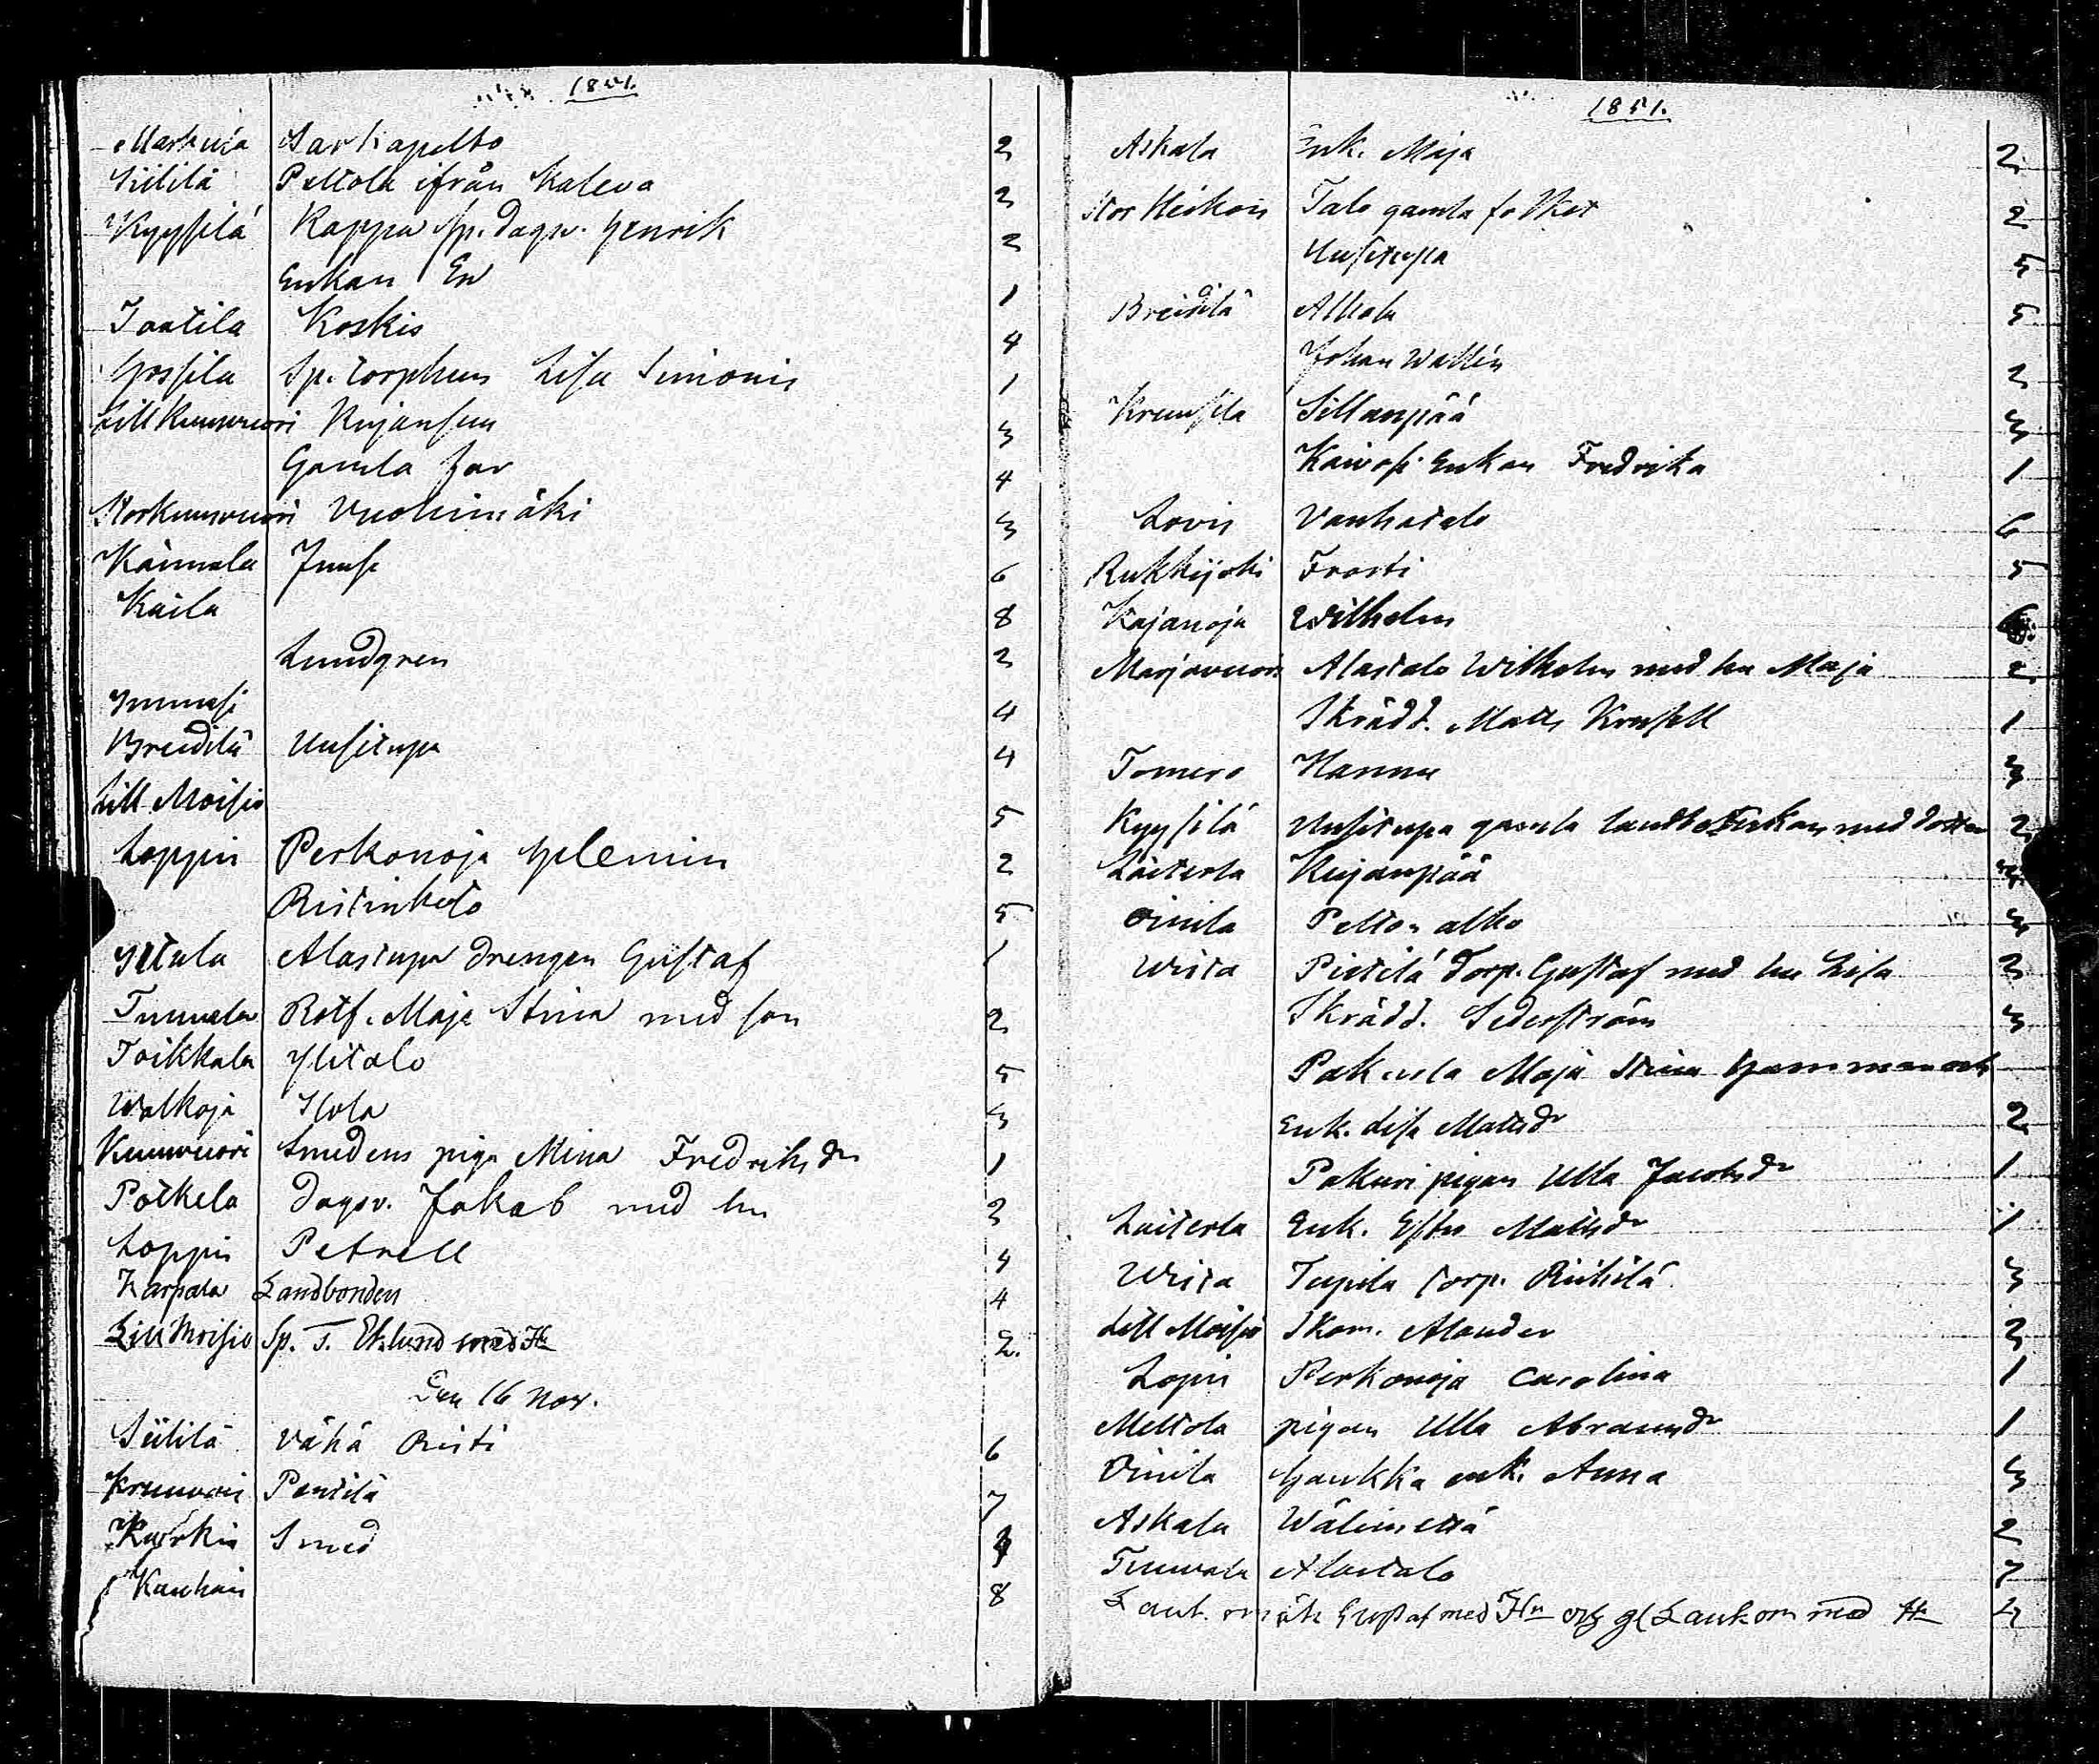 1851.
Markula Sarkapelto 2
Kilila Peltola ifrån Kaleva 2
Kyysilä Kappa Sp. dagsv. Henrik 2
Enkan Ev 1
Iaatila Koskis 4
Hossila Sp. torphus Lisa Simonis 1
Lill Kuusvuori Kujansuu 3
Gamla far 4
Storkuusvuori Vuohimäki 3
Kaunela Juusi 6
Kaila 8
Lundgren 2
4
Breidilä Uusitupa 4
Lill Moisio 5
Loppis Perkonoja 2
Ristinketo 5
Alastupa drengen Gustaf 1
Tuuvala Rotf. Maja Stina med son 2
Toikkala Ylitalo 5
Walkoja Ilola 3
Kuuvuori Smedens piga Mina Fredriksdr 1
Potkela dagsv. Jakab med hu 2
Loppis Petrell 4
Karpala Landbonden 4
Lill Moisio Sp. T. Eklund med Hu 2.
Den 16 Nov.
Siililä Vähä Risti 6
Pentilä 7
Kurkis Smed
Kauhais 8
1851.
Askala Enk. Maja 2
Stor Heikois Talo gamla folket 2
Uusitupa 5
Breidilä Alhola 5
Johan Wallén 2
Kreusila Sillanpää 3
Kaivosi Enkan Fredrika 1
Lovis Vanhatalo 6
Rukkijoki Frosti 5
Kajanoja Wilhelm 6
Marjavuori Alastalo Wilhelm med hu Maja 2
Skrädd. Matts Krusell 1
Tomero Hannu 3
Kyysilä Uusitupa gamla landboEnkan med dotter 2
Laiterla Kujanpää
Oinila Pelton alho 3
Wista Pietilä Torp. Gustaf med hu Lisa 2
Skrädd. Sederström 3
Pakula Maja Stina Hammar och
Enk. Lisa Mattsdr 2
Pakuri pigan Ulla Jacobsdr 1
Laiterla Enk. Ester Mattsdr 1
Wista Tupila torp. Riihilä 3
Lill Moisio Skom. Alander 2
Lopis Perkonoja Carolina 1
Meltola pigan Ulla Abramsdr 1
Oinila Haukka enk. Anna 3
Askala Wälimettä 2
Tuuvala Alastalo 7
Gustaf med Hu och gl Lankom med Hu